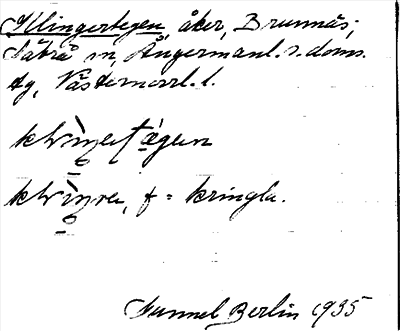 Klingertegen, åker, Brunnäs;
Säbrå sn, Ångermanl. s. doms.
tg, Västernorrl. l.
klìŋetægen
klìŋra, f = kringla.
Sunnel Berlin 1935